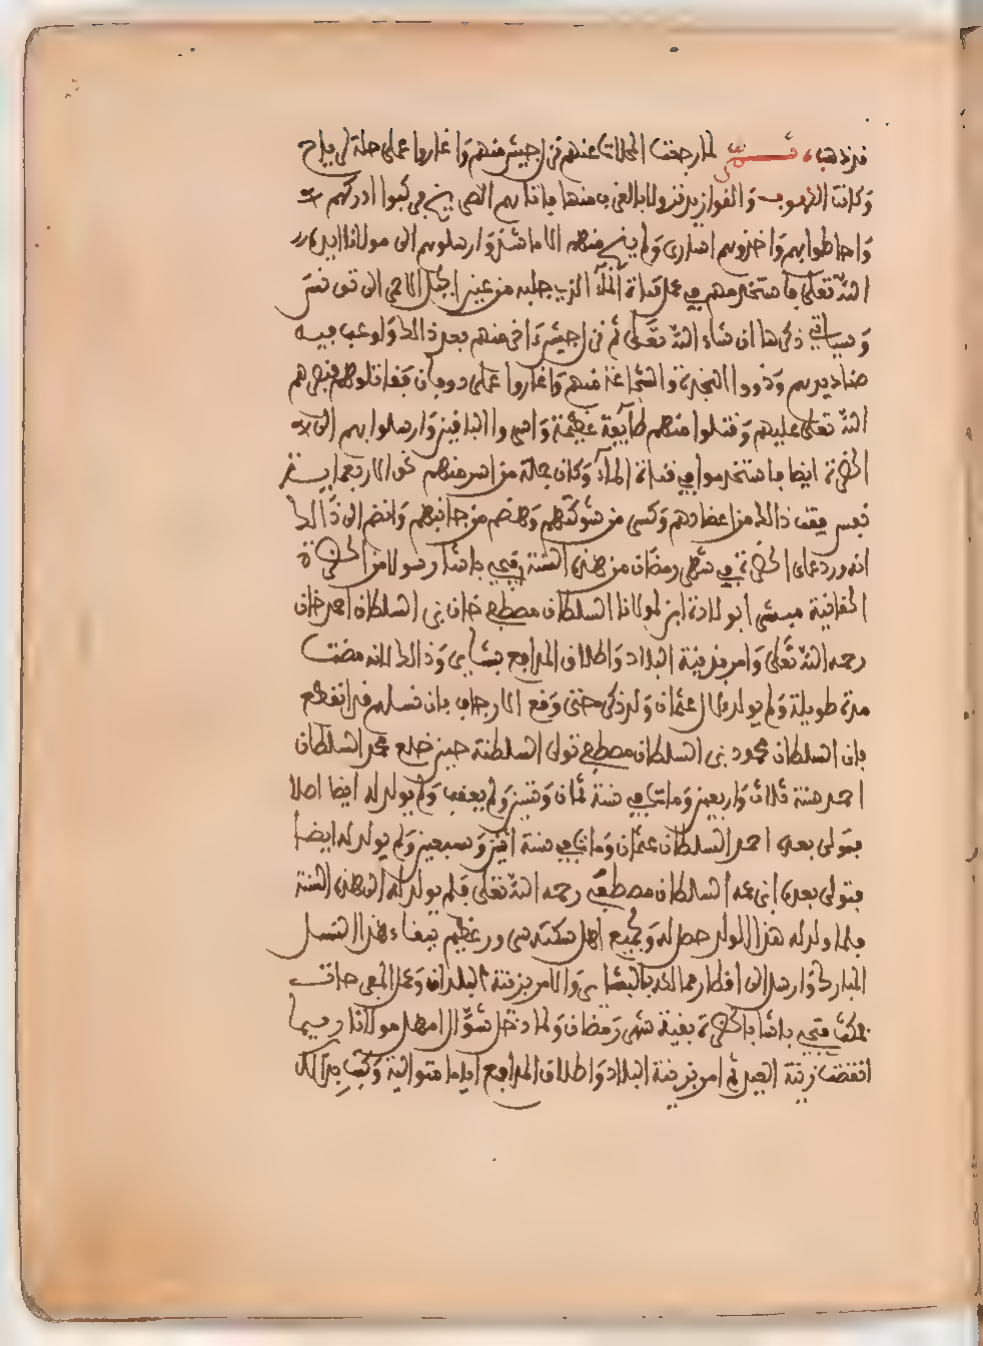 قد ذهب، ثم لما رجعت المحلات عنهم فر اجيش منهم واغاروا على حلة لرياح
وكانت اللهوب والفوازير نزولا بالقرب منها فاتاهم الصريخ فركبوا ادركهم
واحاطوا بهم واخذوهم اسارى ولم ينج منهم الا ما شذ وارسلوهم الى مولانا ايده
الله تعالى فاستخدمهم في عمل قناة الماء الذي جلبه من عين اجبل الاحمر الى تونس
وسياتي ذكرها ان شاء الله تعالى ثم فر اجيش ءاخر منهم بعد ذالك واوعب فيه
صناديدهم وذووا النجدة والشجاعة منهم واغاروا على دوبان فقاتلوهم فنصرهم
الله تعالى عليهم وقتلوا منهم طائفة عظيمة واسروا الباقين وارسلوا بهم الى
الحضرة ايضا فاستخدموا في قناة الماء وكان جملة من اسر منهم نحو الاربعماية
ذالك من اعضادهم وكسر من شوكتهم وهضم من جانبهم وانضم الى ذالك
انه ورد على الحضرة في شهر رمضان من هذه السنة قبجي باشا رسولا من الحضرة
الخاقانية مبشرا بولادة ابن لمولانا السلطان مصطفى خان بن السلطان احمد خان
رحمه الله تعالى وامر بزينة البلاد واطلاق المدافع بشاير وذالك لانه مضت
مدة طويلة ولم يولد لال عثمان ولد ذكر حتى وقع الارجاف بان نسلهم قد انقطع
فان السلطان محمود بن السلطان مصطفى تولى السلطنة حين خلع عمه السلطان
احمد سنة ثلاث واربعين ومات في سنة ثمان وستين ولم يعقب ولم يولد له ايضا اصلا
فتولى بعده اخوه السلطان عثمان ومات في سنة اثنين وسبعين ولم يولد له ايضا
فتولى بعده ابن عمه السلطان مصطفى رحمه الله تعالى فلم يولد له الى هذه السنة
فلما ولد له هذا الولد حصل له ولجميع اهل مملكته سرور عظيم ببقاء هذا النسل
المبارك وارسل الى اقطار ممالكه بالبشاير والامر بزينة البلدان وعمل المفرحات
فمكث قبجي باشا بالحضرة بقية شهر رمضان ولما دخل شوال امهل مولانا ريثما
انقضت زينة العيد ثم امر بزينة البلاد واطلاق المدافع اياما متوالية وكتب بذالك